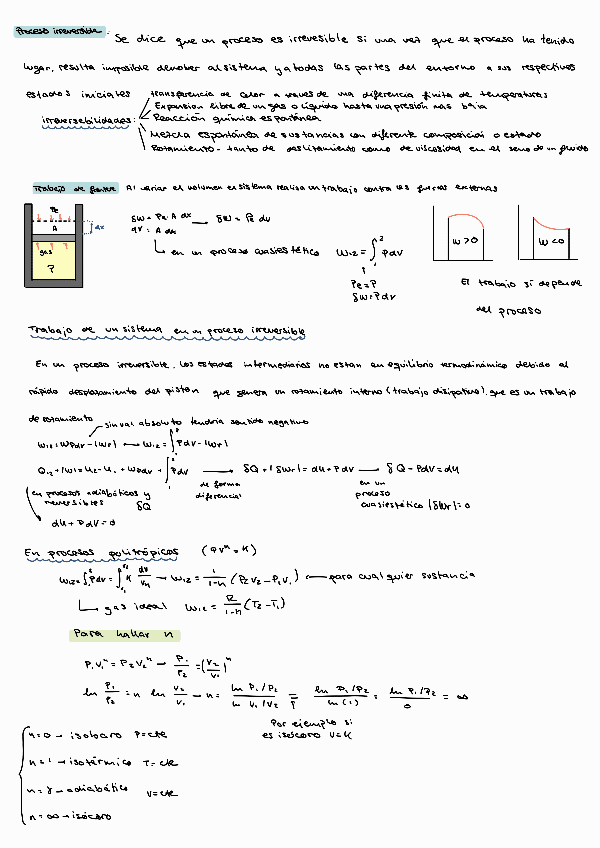 Proceso irreversible: Se dice que un proceso es irrevesible si una vez que el proceso ha tenido
lugar, resulta imposible devolver al sistema y a todas las partes del entorno a sus respectivos
estados iniciales
irreversebilidades:
transparencia de calor a traves de una diferencia finita de temperaturas
Expansion libre de un gas o líquido hasta una presión mas baja
Reacción química espontánea
Mezcla espontánea de sustancias con diferente composición o estado
Rozamiento - tanto de deslizamiento como de viscosidad en el seno de un fluido
Trabajo de frontera Al variar el volumen el sistema realiza un trabajo contra las fuerzas externas
Pe
A
dx
gas
P
δW = Pe · A dx → δW = Pe dV
dV = A dx
en un proceso cuasiestático W₁₂ = ∫₁² PdV
Pe = P
δW = PdV
W > 0
W < 0
El trabajo si depende
del proceso
Trabajo de un sistema en un proceso irreversible
En un proceso irreversible, los estados intermediarios no estan en equilibrio termodinámico debido al
rápido desplazamiento del piston que genera un rozamiento interno (trabajo disipativo), que es un trabajo
de rozamiento
sin val absoluto tendría sentido negativo
W₁₂ = WPdV - |Wr| → W₁₂ = ∫₁² PdV - |Wr|
Q₁₂ + |Wr| = U₂ - U₁ + ∫₁² PdV
de forma
diferencial
δQ + |δWr| = dU + PdV → δQ - PdV = dU
en un
proceso
cuasiestático |δWr| = 0
en procesos adiabáticos y
reversibles δQ
dU + PdV = 0
En procesos politrópicos (PVⁿ = K)
W₁₂ = ∫₁² PdV = ∫ K dV/Vⁿ → W₁₂ = 1/(1-n) (P₂V₂ - P₁V₁) → para cualquier sustancia
gas ideal W₁₂ = R/(1-n) (T₂ - T₁)
Para hallar n
P₁V₁ⁿ = P₂V₂ⁿ → P₁/P₂ = (V₂/V₁)ⁿ
ln P₁/P₂ = n ln V₂/V₁ → n = ln P₁/P₂ / ln V₁/V₂ = ln P₁/P₂ / ln(1) = ln P₁/P₂ / 0 = ∞
Por ejemplo si
es isócoro V=K
n = 0 → isobaro P = cte
n = 1 → isotérmico T = cte
n = γ → adiabático V = cte
n = ∞ → isócoro